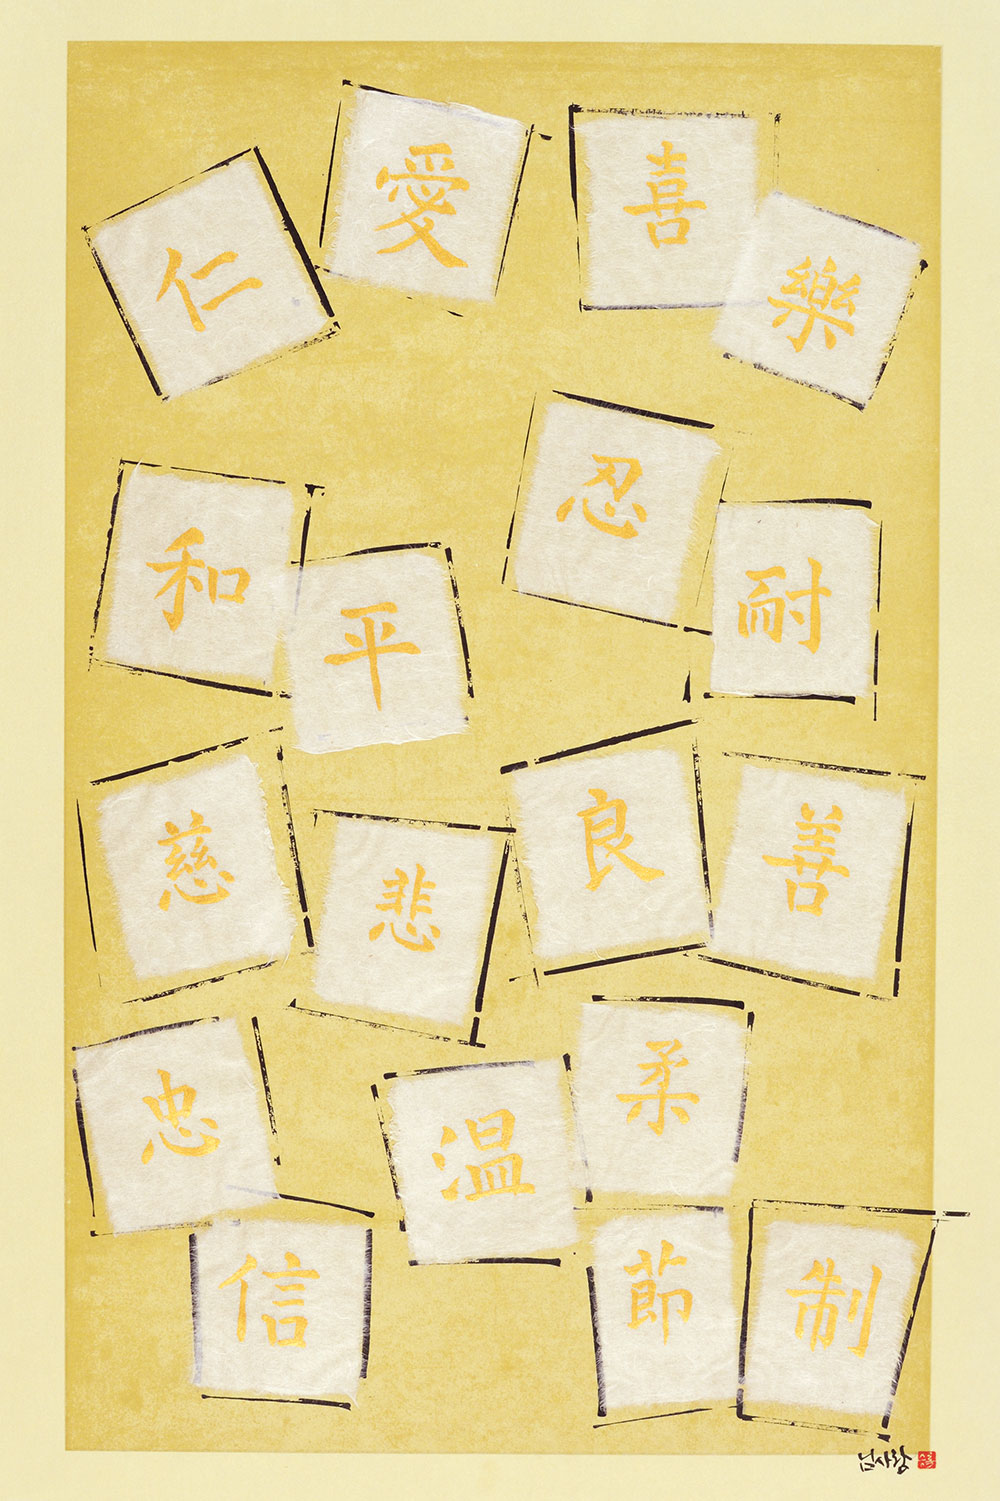 仁愛
喜樂
和平
忍耐
慈悲
良善
忠信
溫柔
節制
님사랑